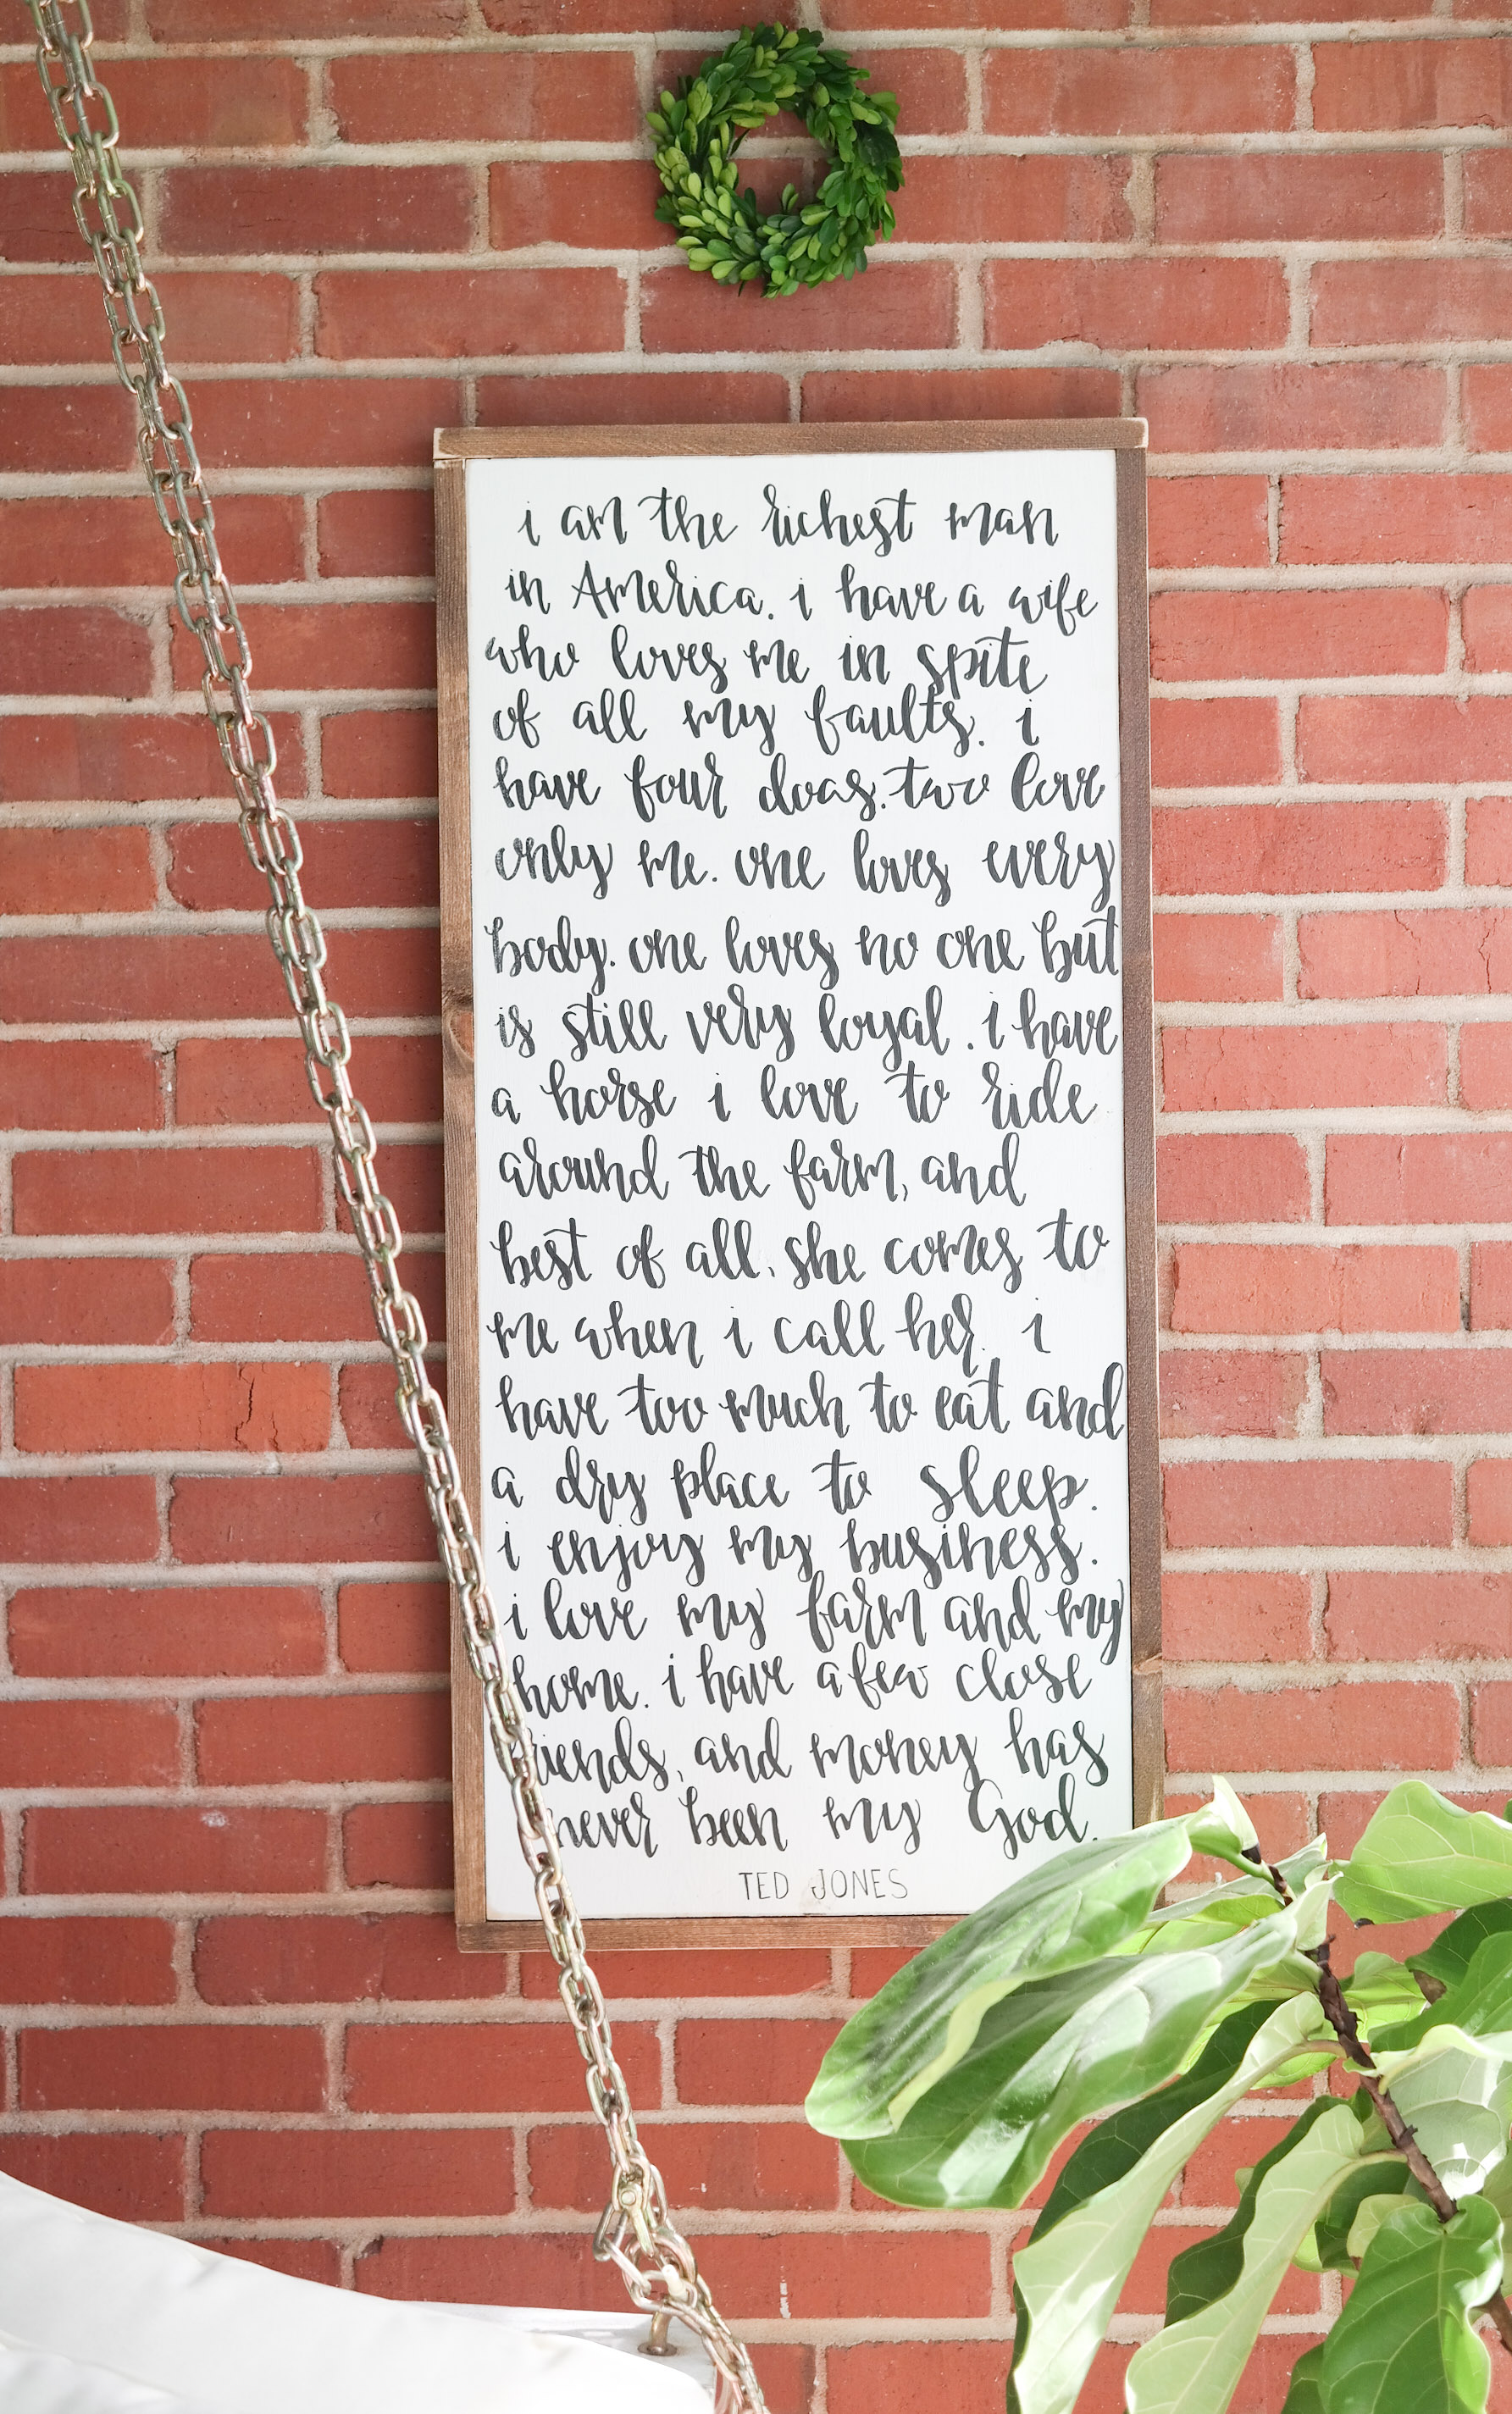 i am the richest man
in America. i have a wife
who loves me in spite
of all my faults. i
have four dogs. two love
only me. one loves every
body. one loves no one but
is still very loyal. i have
a horse i love to ride
around the farm, and
best of all, she comes to
me when i call her. i
have too much to eat and
a dry place to sleep.
i enjoy my business.
i love my farm and my
home. i have a few close
friends, and money has
never been my God.
TED JONES